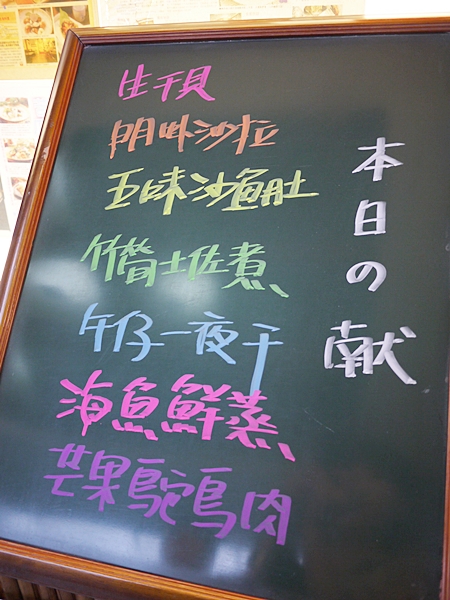 本日の献
生干貝
明虾沙拉
五味沙魚肚
竹脊土佐煮
午仔一夜干
海魚鮮蒸
芒果鴕鳥肉